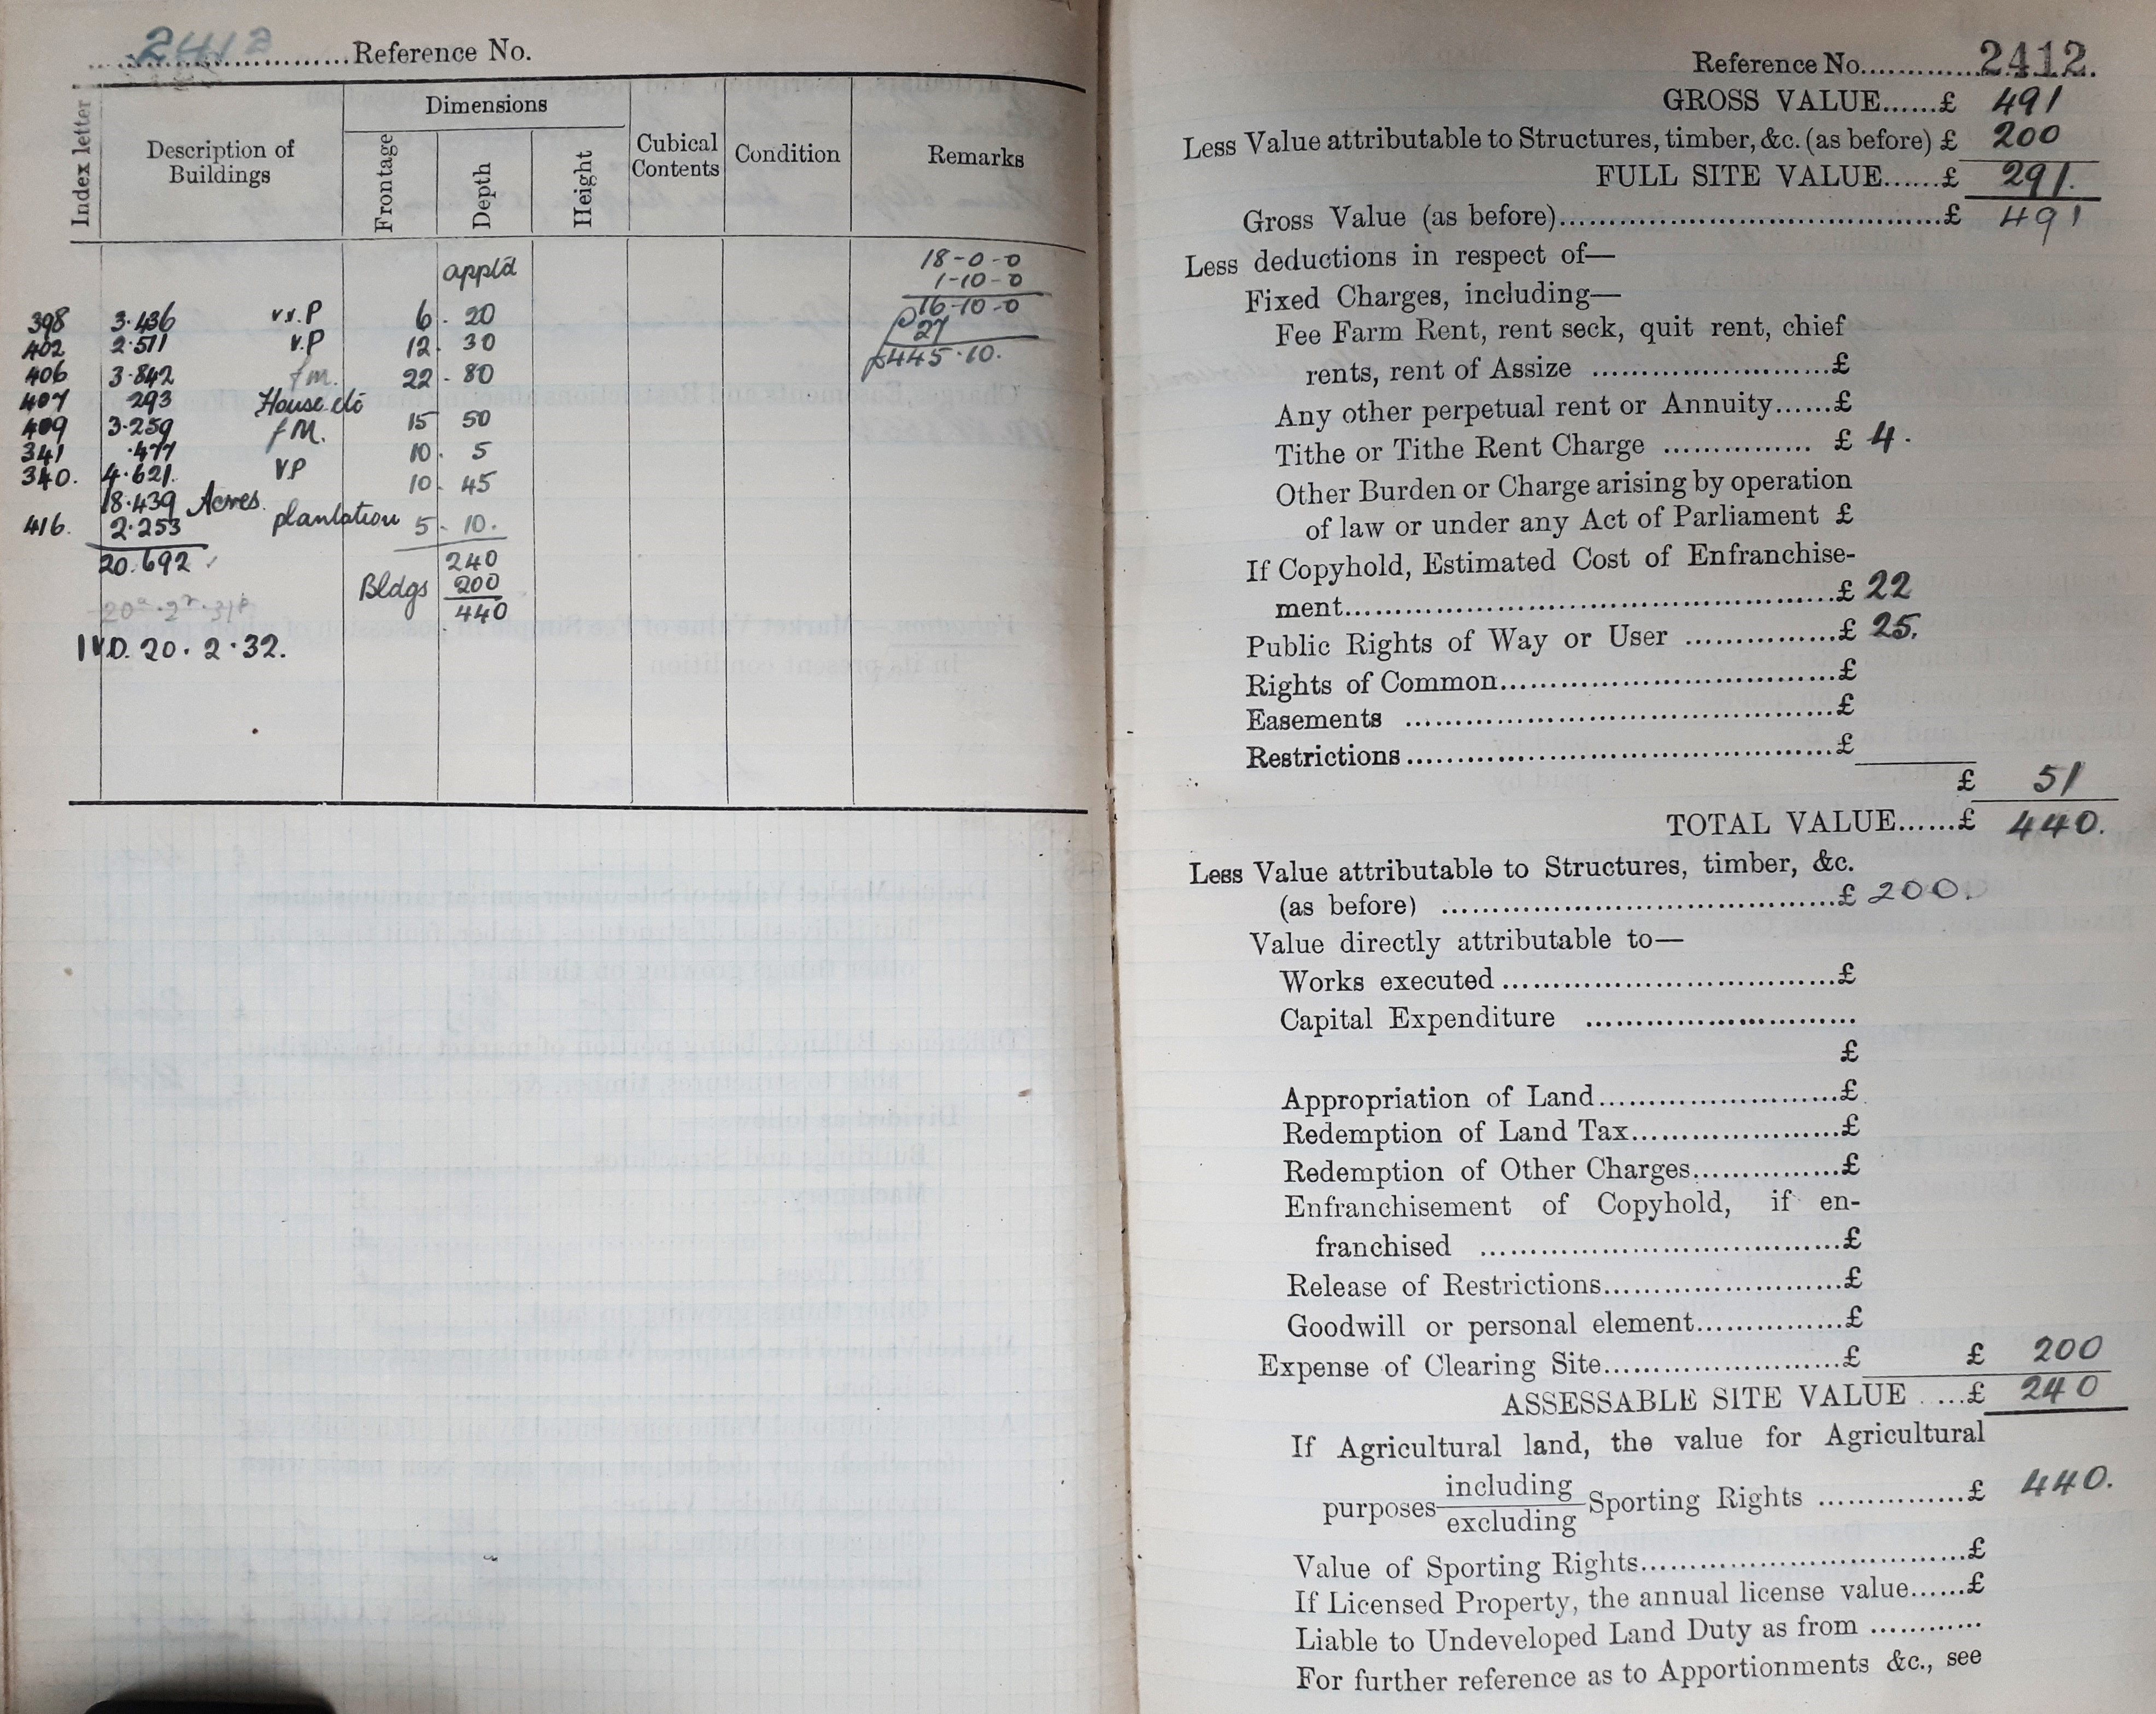 2412 Reference No.
Index letter
Description of Buildings
Dimensions
Frontage
Depth
Height
Cubical Contents
Condition
Remarks
appld
18-0-0
1-10-0
16-10-0
27
£445.10.
398 3.436 v.v.P 6. 20
402 2.511 v.P 12. 30
406 3.842 f m. 22. 80
407 293 House etc
409 3.259 f M. 15 50
341 .477 10. 5
340. 4.621. V.P 10. 45
18.439 Acres.
416. 2.253 plantation 5. 10.
20.692 240
Bldgs 200
20a. 2r. 31p 440
IVD. 20. 2. 32.
Reference No. 2412.
GROSS VALUE......£ 491
Less Value attributable to Structures, timber, &c. (as before) £ 200
FULL SITE VALUE......£ 291.
Gross Value (as before)......£ 491
Less deductions in respect of—
Fixed Charges, including—
Fee Farm Rent, rent seck, quit rent, chief
rents, rent of Assize ......£
Any other perpetual rent or Annuity......£
Tithe or Tithe Rent Charge ......£ 4.
Other Burden or Charge arising by operation
of law or under any Act of Parliament £
If Copyhold, Estimated Cost of Enfranchise-
ment......£ 22
Public Rights of Way or User ......£ 25.
Rights of Common......£
Easements ......£
Restrictions......£
£ 51
TOTAL VALUE......£ 440.
Less Value attributable to Structures, timber, &c.
(as before) ......£ 200.
Value directly attributable to—
Works executed......£
Capital Expenditure ......
£
Appropriation of Land......£
Redemption of Land Tax......£
Redemption of Other Charges......£
Enfranchisement of Copyhold, if en-
franchised ......£
Release of Restrictions......£
Goodwill or personal element......£
Expense of Clearing Site......£ £ 200
ASSESSABLE SITE VALUE ....£ 240
If Agricultural land, the value for Agricultural
purposes including excluding Sporting Rights ......£ 440.
Value of Sporting Rights......£
If Licensed Property, the annual license value......£
Liable to Undeveloped Land Duty as from ......
For further reference as to Apportionments &c., see